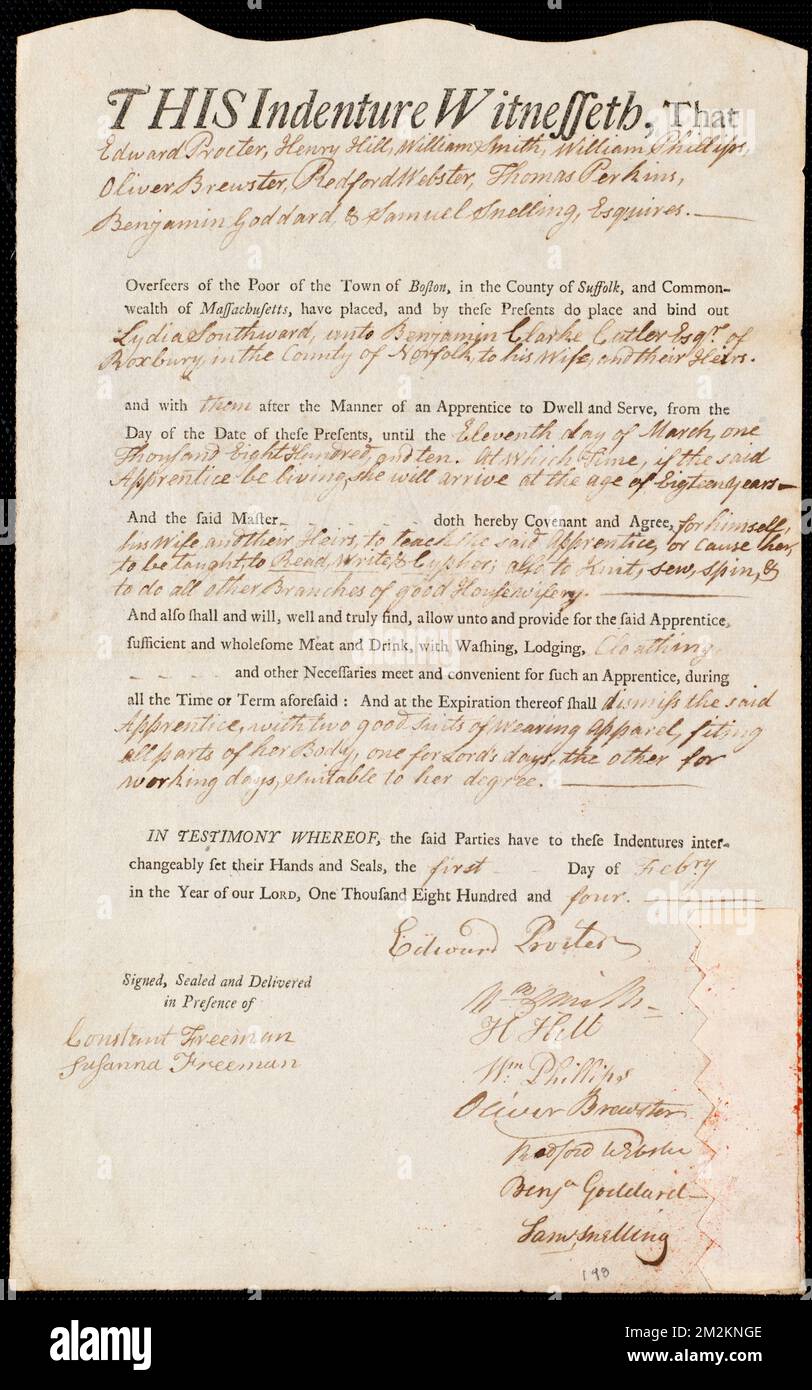 THIS Indenture Witneſſeth, That
Edward Procter, Henry Hill, William Smith, William Phillips,
Oliver Brewster, Redford Webster, Thomas Perkins,
Benjamin Goddard, & Samuel Snelling, Esquires.
Overſeers of the Poor of the Town of Boſton, in the County of Suffolk, and Common-
wealth of Maſſachuſetts, have placed, and by theſe Preſents do place and bind out
Lydia Southward, unto Benjamin Clarke Cutler Esqr. of
Roxbury, in the County of Norfolk, to his Wife, and their Heirs.
and with them after the Manner of an Apprentice to Dwell and Serve, from the
Day of the Date of theſe Preſents, until the Eleventh day of March, one
Thouſand Eight Hundred, and ten. At Which Time, if the said
Apprentice be living, she will arrive at the age of Eigteen years
And the ſaid Maſter doth hereby Covenant and Agree, for himself,
his Wife, and their Heirs, to teach the said Apprentice, or cause her,
to be taught to Read, Write, & Cypher; also to Knit, sew, spin, &
to do all other Branches of good Houſewifery.
And alſo ſhall and will, well and truly find, allow unto and provide for the ſaid Apprentice,
ſufficient and wholeſome Meat and Drink, with Waſhing, Lodging, Cloathing,
and other Neceſſaries meet and convenient for ſuch an Apprentice, during
all the Time or Term aforeſaid: And at the Expiration thereof ſhall dismiſs the said
Apprentice, with two good suits of wearing apparel, fiting
all parts of her Body, one for Lord's days, the other for
working days, suitable to her degree.
IN TESTIMONY WHEREOF, the ſaid Parties have to theſe Indentures inter-
changeably ſet their Hands and Seals, the first Day of Febry
in the Year of our LORD, One Thouſand Eight Hundred and four.
Edward Procter
Signed, Sealed and Delivered
in Preſence of
Constant Freeman
Suſanna Freeman
Wm Smith
H Hill
Wm Phillips
Oliver Brewster
Redford Webster
Benja Goddard
Saml Snelling
198
alamy
alamy
Image ID: 2M2KNGE
www.alamy.com